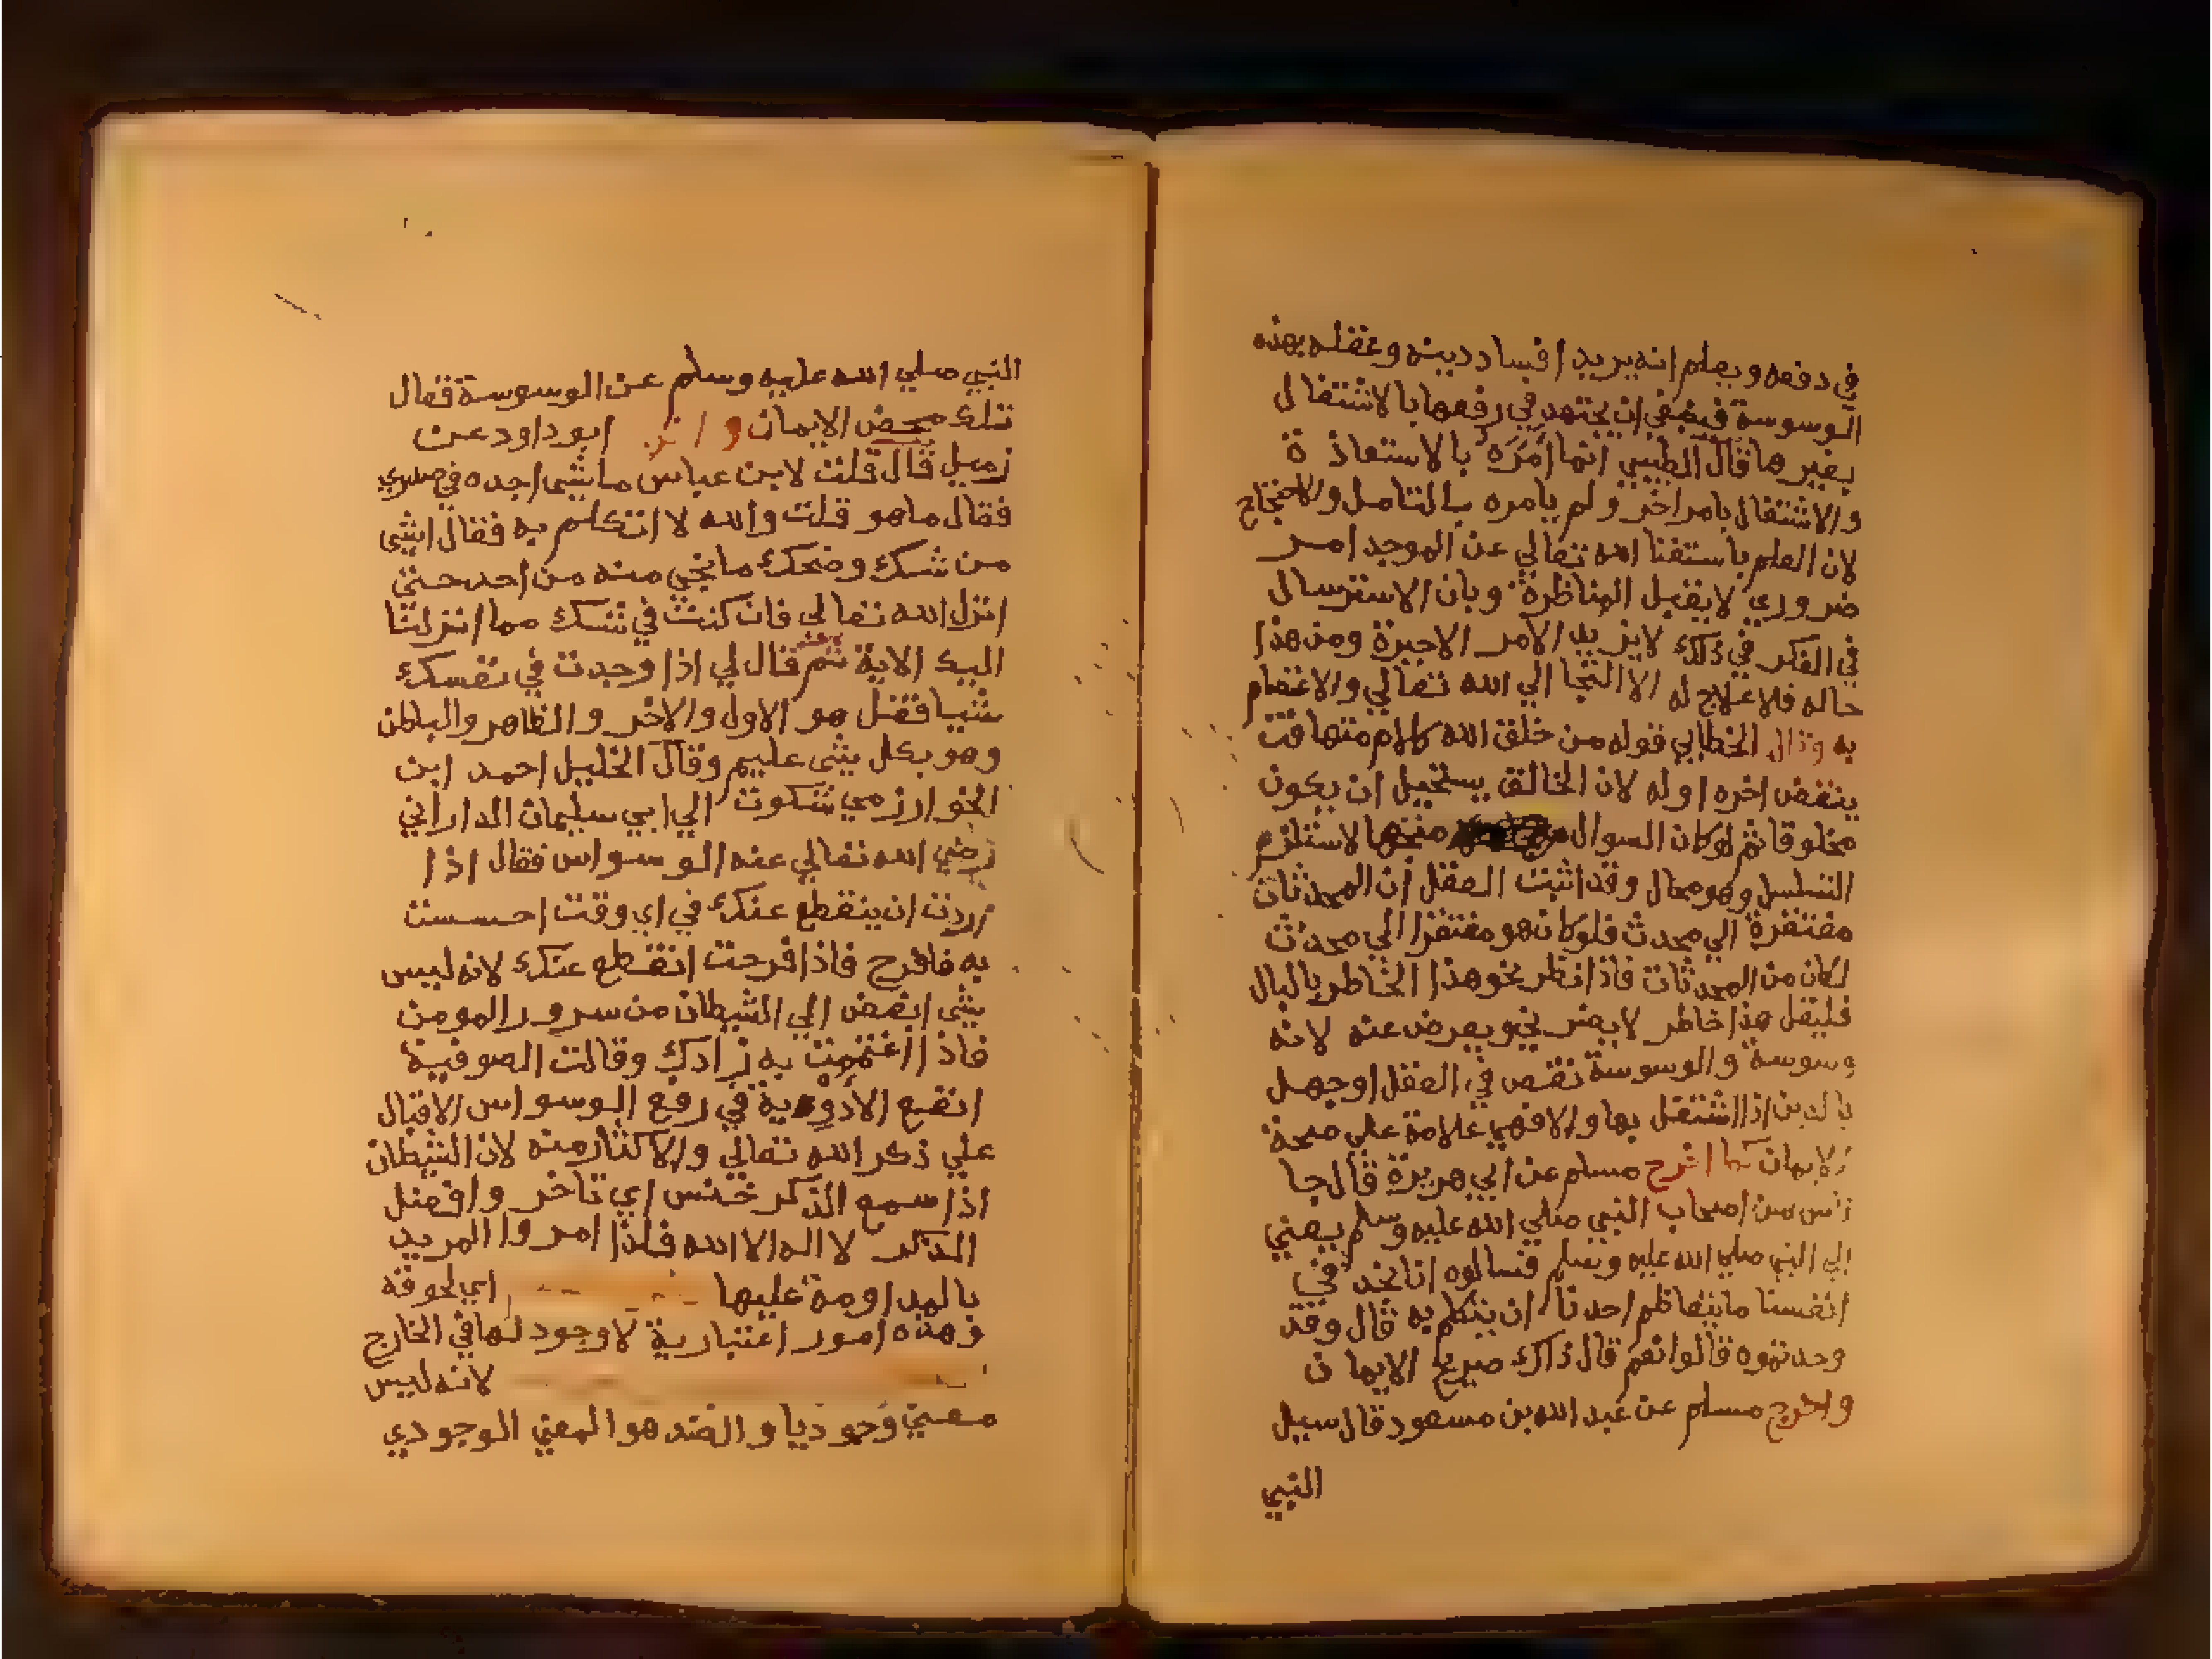 في دفعه ويعلم انه يريد افساد دينه وعقله بهذه
الوسوسة فينبغي ان يجتهد في رفعها بالاشتغال
بغيرها قال الطيبي انما أمَرَهُ بالاستعاذ ة
والاشتغال بامر اخر ولم يامره بالتامل والاحتجاج
لان العلم باستغنا الله تعالي عن الموجد امر
ضروري لايقبل المناظرة وبان الاسترسال
في الفكر في ذلك لايزيد الامر الاحيرة ومن هذا
حاله فلا علاج له الا التجا الي الله تعالي والاعتصام
به وقال الخطابي قوله من خلق الله كلام متهافت
ينقض اخره اوله لان الخالق يستحيل ان يكون
مخلوقا ثم لو كان السوال متجها لاستلزم
التسلسل وهو محال وقد اثبت العقل أن المحدثات
مفتقرة الي محدث فلو كان هو مفتقرا الي محدث
لكان من المحدثات فاذا نظر نحو هذا الخاطر بالبال
فليقل هذا خاطر لايضرني ويعرض عنه لانه
وسوسة والوسوسة نقص في العقل او جهل
بالدين اذا اشتغل بها والافهي علامة علي صحة
الايمان كما اخرج مسلم عن ابي هريرة قال جا
ناس من اصحاب النبي صلي الله عليه وسلم يعني
الي النبي صلي الله عليه وسلم فسالوه انا نجد في
انفسنا مايتعاظم احدنا ان يتكلم به قال وقد
وجدتموه قالوا نعم قال ذاك صريح الايما ن
واخرج مسلم عن عبد الله بن مسعود قال سيل
النبي
النبي صلي الله عليه وسلم عن الوسوسة فقال
تلك محض الايمان و ابو داود عن
زميل قال قلت لابن عباس ماشى اجده في صدري
فقال ماهو قلت والله لا اتكلم به فقال اشى
من شك وضحك مانجي منه من احد حتي
انزل الله تعالي فان كنت في شك مما انزلنا
اليك الاية ثم قال لي اذا وجدت في نفسك
شيا فقل هو الاول والاخر والظاهر والباطن
وهو بكل شى عليم وقال الخليل احمد ابن
الخوارزمي شكوت الي ابي سليمان الداراني
رضي الله تعالي عنه الوسواس فقال اذا
اردت ان ينقطع عنك في اي وقت احسست
به فافرح فاذا فرحت انقطع عنك لانه ليس
شى ابغض الي الشيطان من سرور المومن
فاذا اغتممت به زادك وقالت الصوفية
انفع الأدوية في رفع الوسواس الاقبال
علي ذكر الله تعالي والاكثار منه لان الشيطان
اذا سمع الذكر خنس اي تاخر وافضل
الذكر لا اله الا الله فلذا امروا المريد
بالمداومة عليها اي لحوقه
وهذه امور اعتبارية لاوجود لها في الخارج
لانه ليس
معني وجوديا والضد هو المعني الوجودي